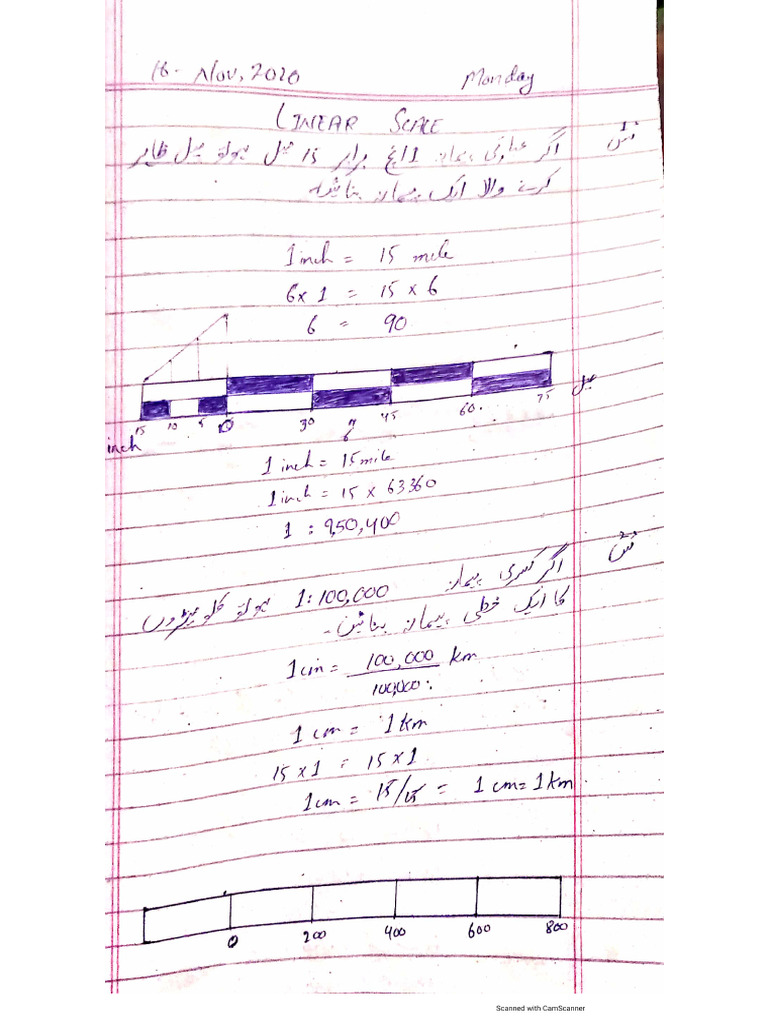 16- Nov, 2020 Monday
LINEAR SCALE
اگر عبارتی پیمانہ 1 انچ برابر 15 میل ہو تو میل ظاہر
کرنے والا ایک پیمانہ بنائیے
1 inch = 15 mile
6x 1 = 15 x 6
6 = 90
15 10 5 0 30 45 60. 75 میل
inch 6"
1 inch = 15 mile
1 inch = 15 x 63360
1 : 9,50,400
اگر کسری پیمانہ 1:100,000 ہو تو کلومیٹروں
کا ایک خطی پیمانہ بنائیں۔
1 cm = 100,000 km
100,000
1 cm = 1 km
15 x 1 = 15 x 1
1 cm = 15/15 = 1 cm = 1 km
0 200 400 600 800
Scanned with CamScanner